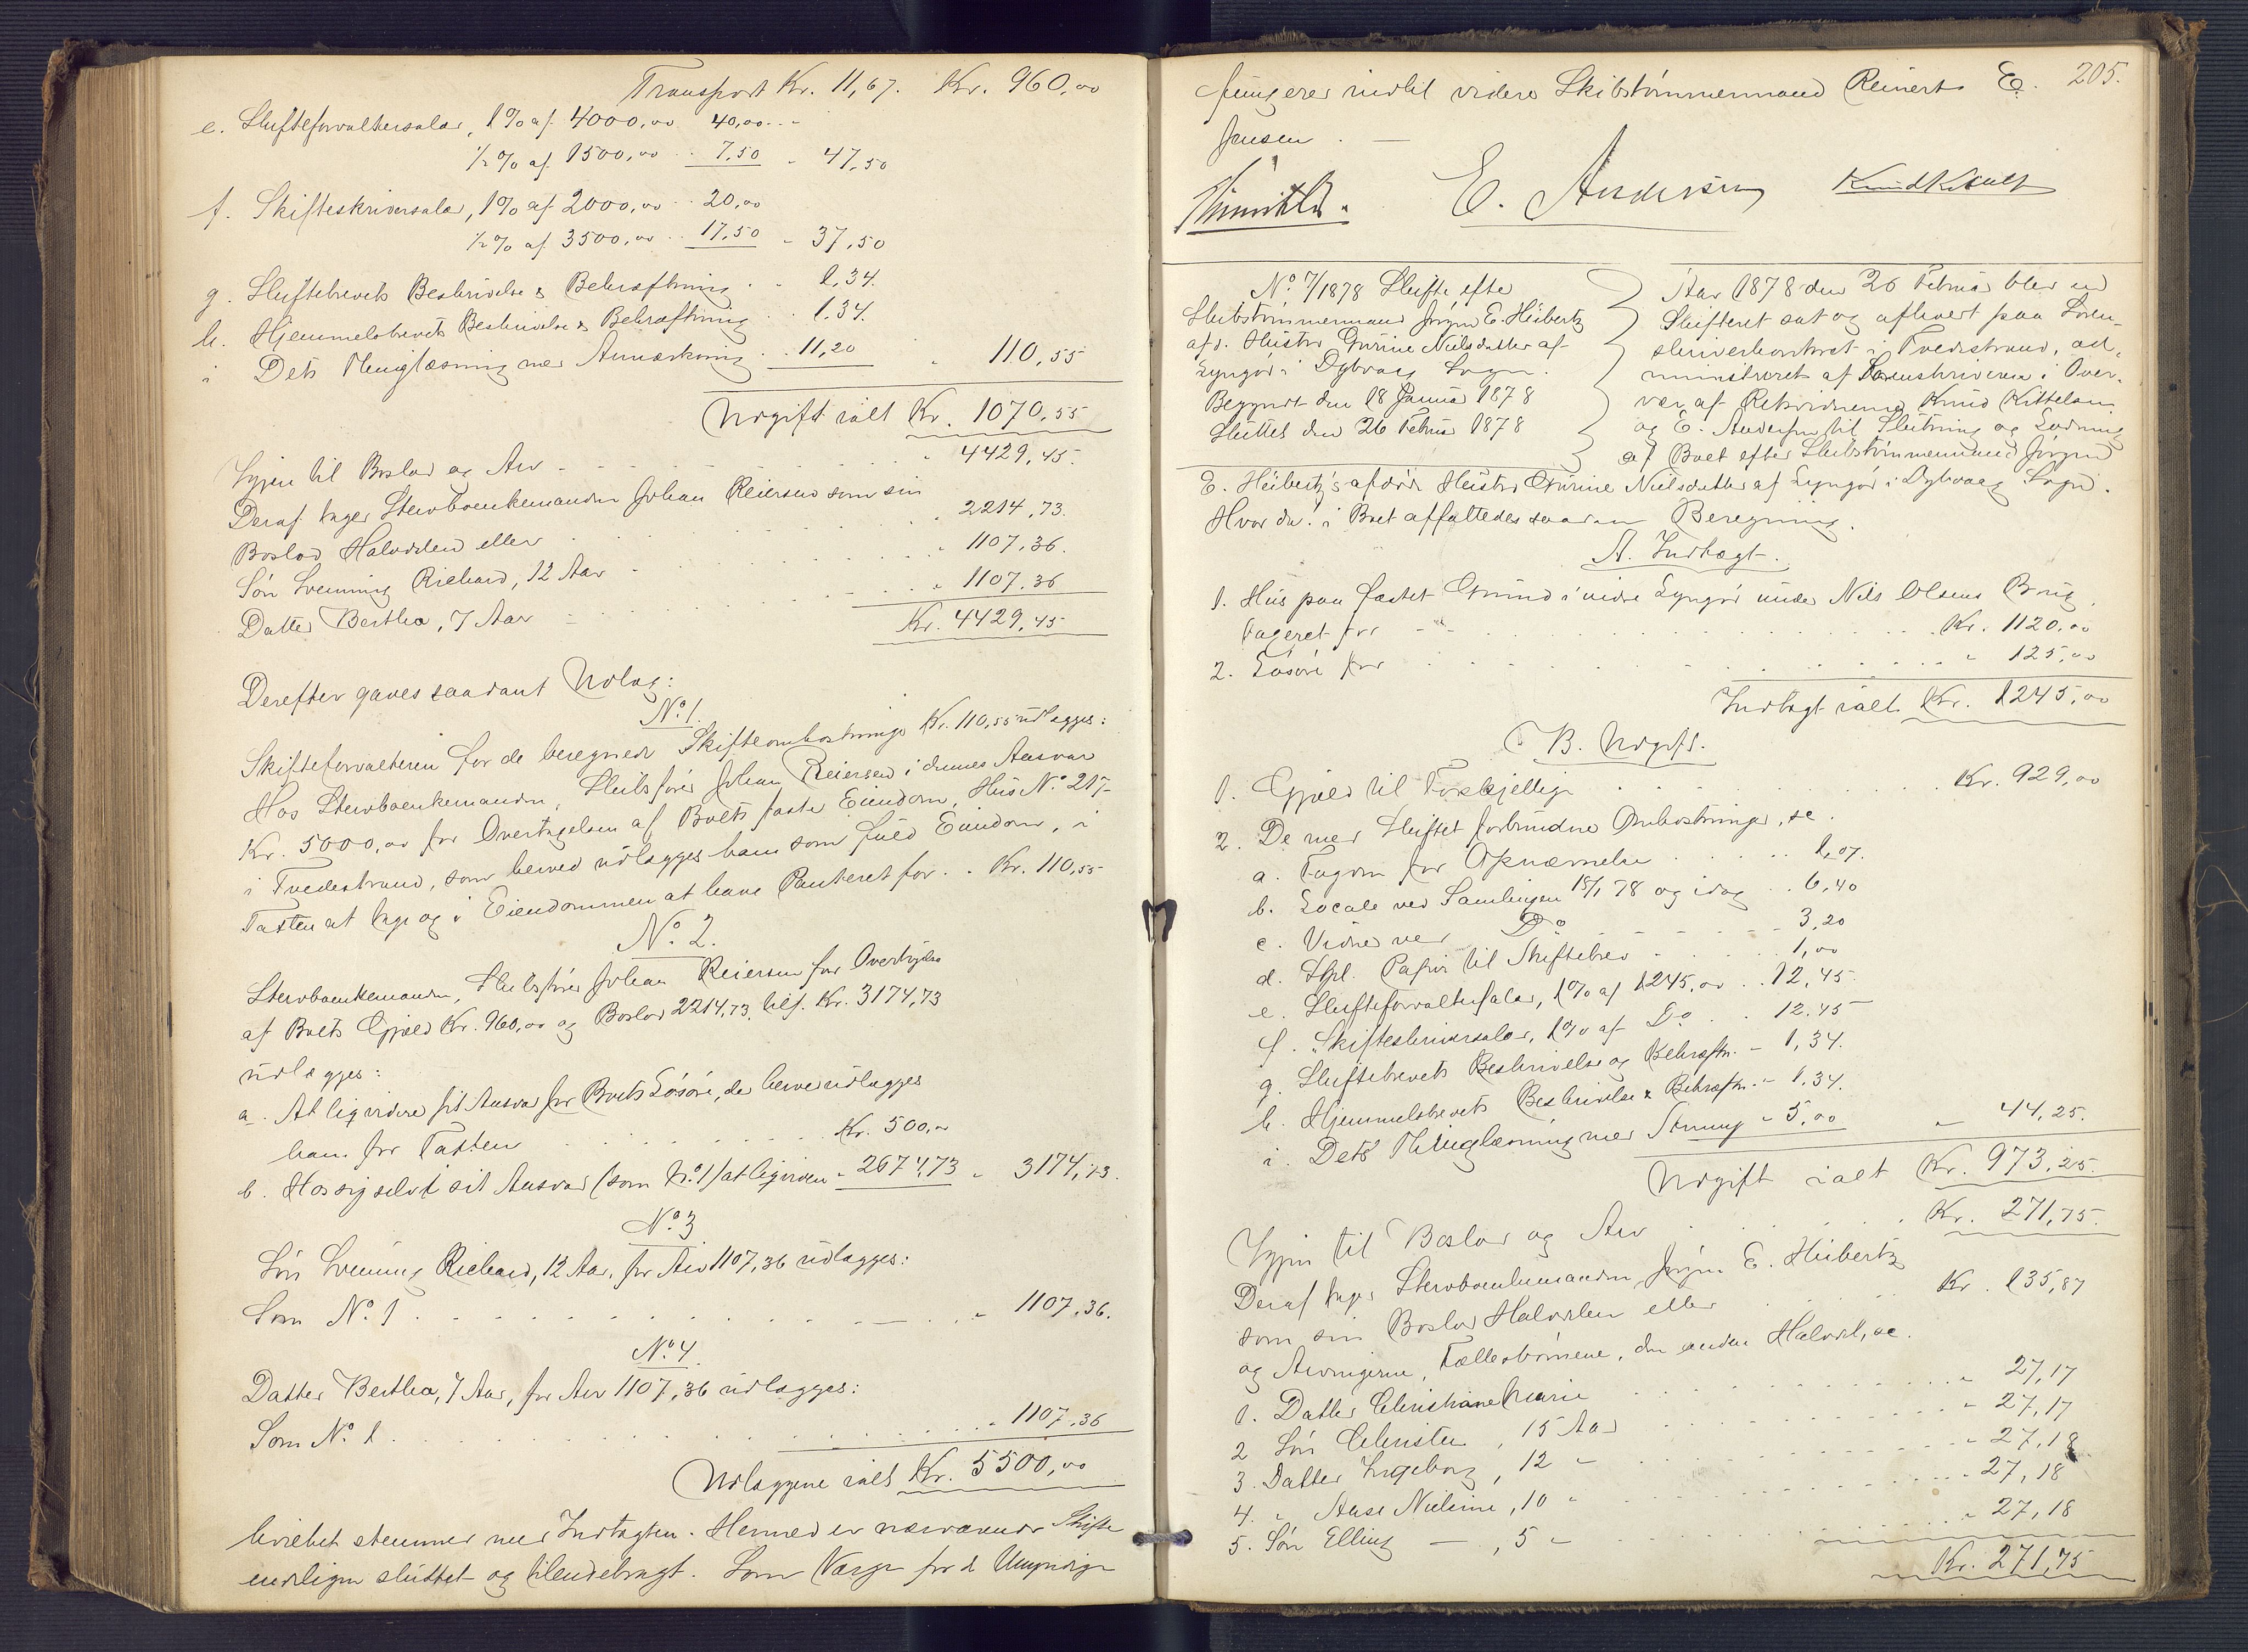 Transport Kr. 11,67. Kr. 960,00
e. Skifteforvaltersalær, 1% af 4000,00 40,00
½% af 1500,00 7,50 47,50
f. Skifteskriversalær, 1% af 2000,00 20,00
½% af 3500,00 17,50 37,50
g. Skiftebrevets Beskrivelse & Bekræftning 1,34.
h. Hjemmelsbrevets Beskrivelse & Bekræftning 1.34.
i Dets Thinglæsning med Anmærkning 11,20 110,55
Udgift ialt Kr. 1070,55
Igjen til Boslod og Arv 4429,45.
Deraf tager Stervboenkemanden Johan Reiersen som sin
Boslod Halvdelen eller 2214,73.
Søn Svenning Richard, 12 Aar 1107,36.
Datter Bertha, 7 Aar 1107.36
Kr. 4429,45
Derefter gaves saadant Udlæg:
No. 1.
Skifteforvalteren for de beregnede Skifteomkostninger Kr. 110,55 udlægges:
Hos Stervboenkemanden, Skibsfører Johan Reiersen i dennes Ansvar
Kr. 5000,00 for Overtagelsen af Boets faste Eiendom, Hus No. 217
i Tvedestrand, som herved udlægges ham som fuld Eiendom, i
Taxten at tage og i Eiendommen at have Panteret for Kr. 110,55
No. 2.
Stervboenkemanden, Skibsfører Johan Reiersen for Overtagelse
af Boets Gjæld Kr. 960,00 og Boslod 2214,73, tils. Kr. 3174,73
udlægges:
a. At liqvidere sit Ansvar for Boets Løsøre, der herved udlægges
ham for Taxten Kr. 500,00
b. Hos sig selv i sit Ansvar (som No. 1) at liqvidere 2674,73 3174,73.
No. 3
Søn Svenning Richard, 12 Aar, for Arv 1107,36 udlægges:
Som No. 1 1107,36.
No. 4.
Datter Bertha, 7 Aar, for Arv 1107,36 udlægges:
Som No. 1 1107,36
Udlæggene ialt Kr. 5500,00
hvilket stemmer med Indtægten. Hermed er nærværende Skifte
endeligen sluttet og tilendebragt. Som Værge for de Umyndige
205.
fungerer indtil videre Skibstømmermand Reinert E.
Jensen. —
E. Andersen Knud Kittelsen
No. 7/1878 Skifte efter
Skibstømmermand Jørgen E. Heibertz
afd. Hustru Gurine Nielsdatter af
Lyngør i Dybvaag Sogn.
Begyndt den 18 Januar 1878
Sluttet den 26 Februar 1878
Aar 1878 den 26 Februar blev en
Skifteret sat og afholdt paa Soren-
skriverkontoret i Tvedestrand, ad-
ministreret af Sorenskriveren i Over-
vær af Retsvidnerne Knud Kittelsen
og E. Andersen til Slutning og Lodning
af Boet efter Skibstømmermand Jørgen
E. Heibertz's afdøde Hustru Gurine Nielsdatter af Lyngør i Dybvaag Sogn.
Hvor da i Boet affattedes saadan Beregning.
A. Indtægt.
1. Hus paa fæstet Grund i indre Lyngør under Nils Olsens Brug,
taxeret for Kr. 1120,00
2. Løsøre for 125,00
Indtægt ialt Kr. 1245,00
B. Udgift.
1. Gjæld til Forskjellige Kr. 929,00
2. De med Skiftet forbundne Omkostninger, se.
a. Fogden for Opnævnelse 1,07.
b. Locale ved Samlingen 18/1 78 og idag 6,40
c. Vidner ved Do 3,20
d. Stpl. Papir til Skiftebrev 1,00
e. Skifteforvaltersalær, 1% af 1245,00 12,45.
f. Skifteskriversalær, 1% af Do 12.45
g. Skiftebrevets Beskrivelse og Bekræftn. 1,34.
h. Hjemmelsbrevets Beskrivelse & Bekræftn. 1.34.
i. Dets Thinglæsning med 5,00 44,25.
Udgift ialt Kr. 973,25.
Igjen til Boslod og Arv Kr. 271,75.
Deraf tager Stervboenkemanden Jørgen E. Heibertz
som sin Boslod Halvdelen eller Kr. 135,87
og Arvingerne, Fællesbørnene, den anden Halvdel, se.
1. Datter Christiane Marie 27,17
2 Søn Christen, 15 Aar 27,17
3. Datter Ingeborg, 12 " 27,18
4. " Aase Nicline, 10 " 27,18
5. Søn Elling —, 5 " 27,18
Kr. 271,75